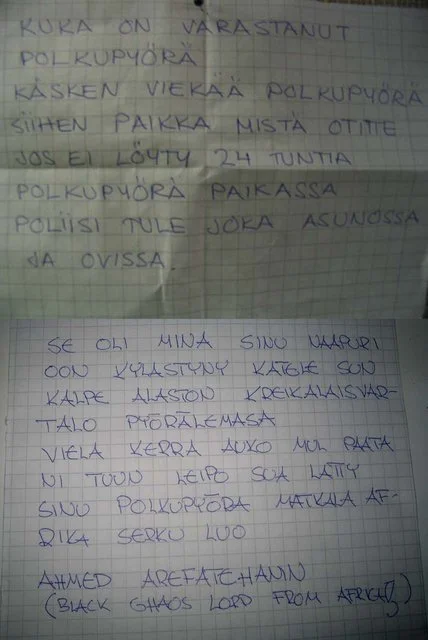 KUKA ON VARASTANUT
POLKUPYÖRÄ
KÄSKEN VIEKÄÄ POLKUPYÖRÄ
SIIHEN PAIKKA MISTÄ OTITTE
JOS EI LÖYTY 24 TUNTIA
POLKUPYÖRÄ PAIKASSA
POLIISI TULE JOKA ASUNOSSA
JA OVISSA.
SE OLI MINÄ SINU NAAPURI
OON KYLÄSTYNY KATELE SUN
KALPE ALASTON KREIKALAISVAR-
TALO PYÖRÄLEMÄSÄ
VIELA KERRA AUKO MUL PÄÄTÄ
NI TUUN LEIPO SUA LÄTTY
SINU POLKUPYÖRÄ MATKALA AF-
RIKA SERKU LUO
AHMED AREFATEHANIN
(BLACK GHAOS LORD FROM AFRICA)